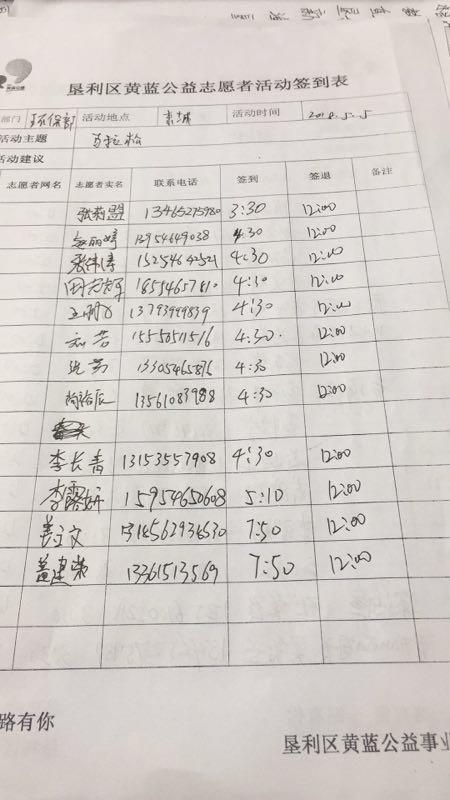 垦利区黄蓝公益志愿者活动签到表
部门 环保部 活动地点 活动时间 2018.5.5
活动主题 马拉松
活动建议
志愿者网名 志愿者实名 联系电话 签到 签退 备注
张莉盟 13465275980 3:30 12:00
13954649038 4:30 12:00
张伟涛 15254642521 4:30 12:00
18554657810 4:30 12:00
13793999839 4:30 12:00
刘芳 15550511516 4:30. 12:00
13305465876 4:30 12:00
13561083988 4:30 12:00
李长青 13153557908 4:30 12:00
李露妍 15954650608 5:10 12:00
姜立文 7:50 12:00
盖建荣 13361513569 7:50 12:00
路有你
垦利区黄蓝公益事业